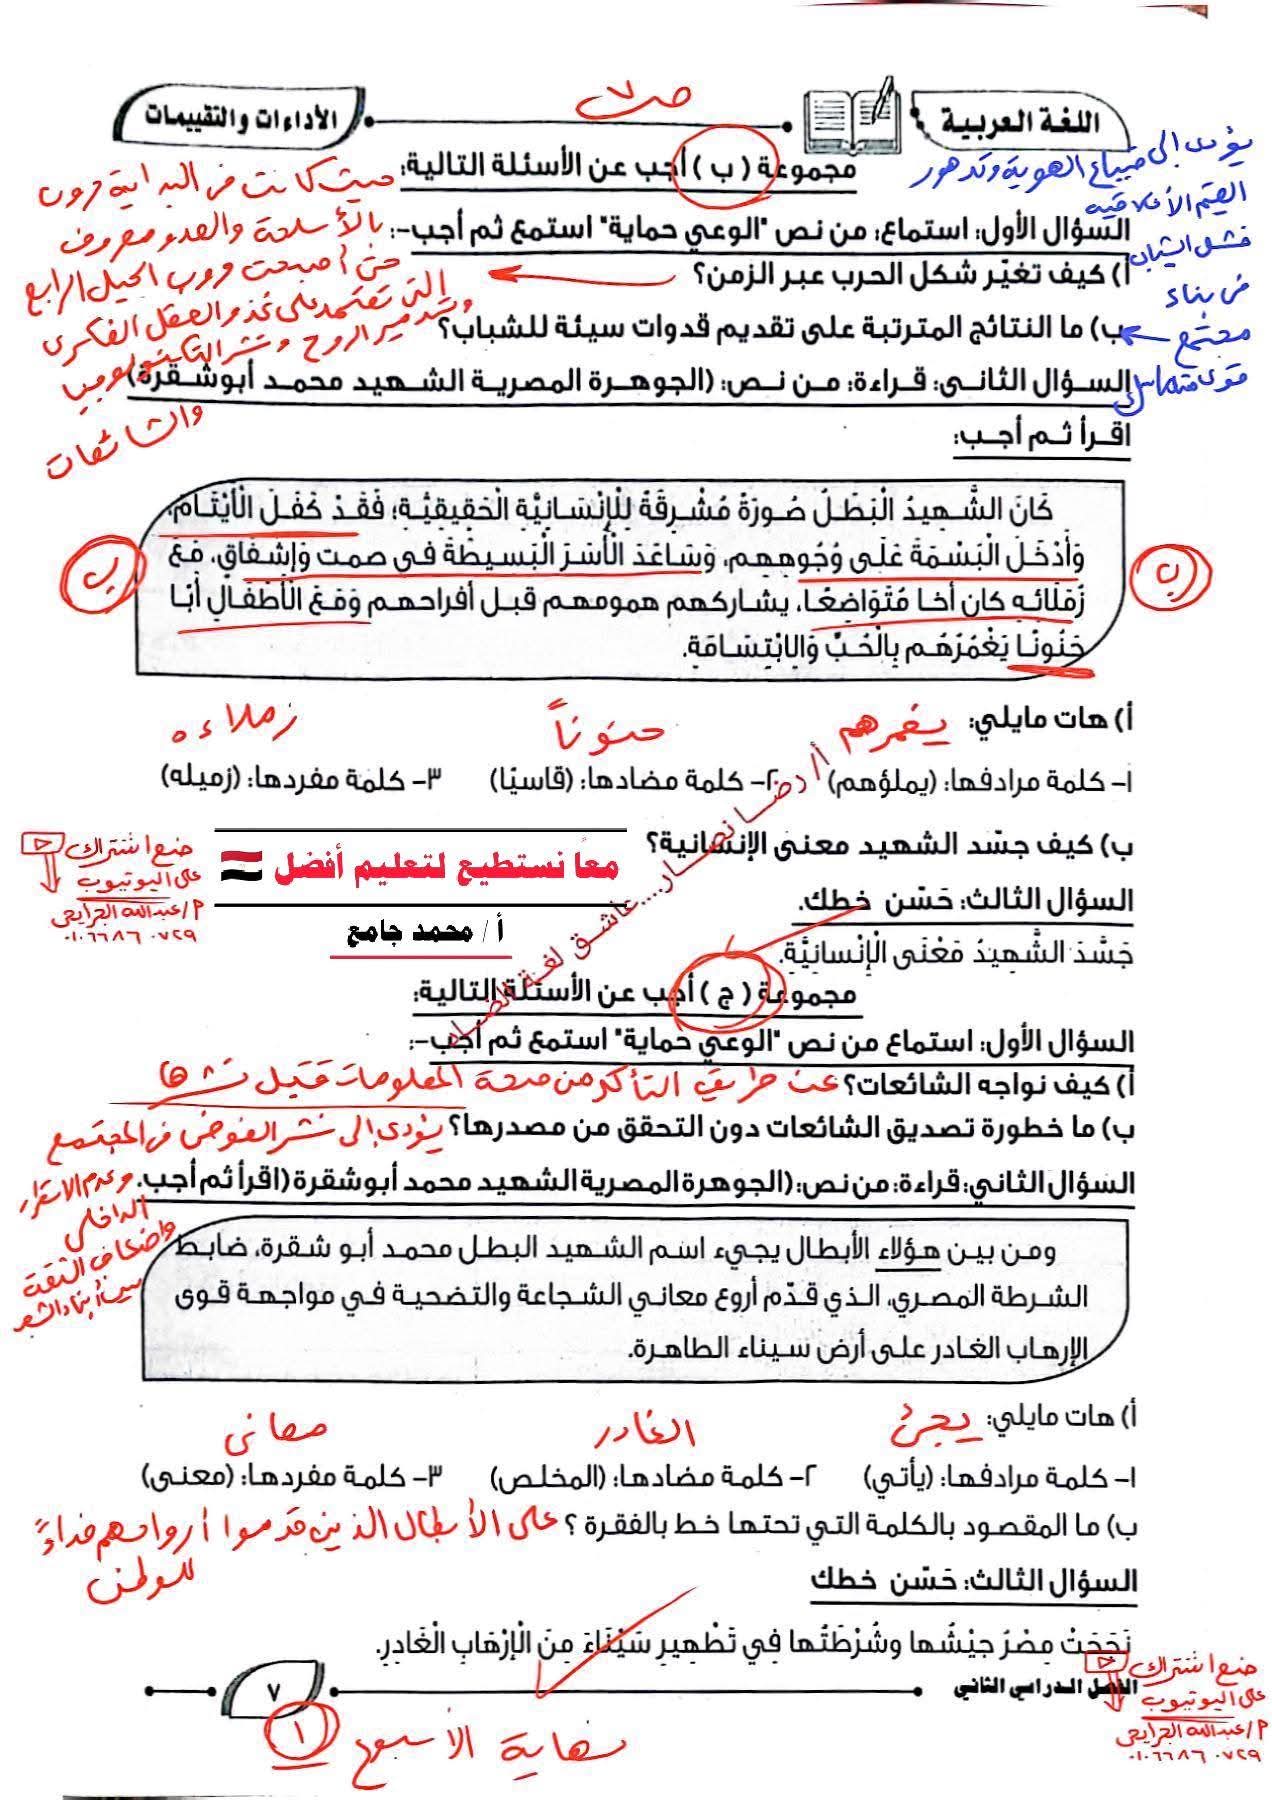 ص ٧
اللغة العربية
الأداءات والتقييمات
مجموعة ( ب ) أجب عن الأسئلة التالية:
السؤال الأول: استماع: من نص "الوعي حماية" استمع ثم أجب:-
أ) كيف تغيّر شكل الحرب عبر الزمن؟
حيث كانت في البداية حروب
بالأسلحة والعدو معروف
حتى أصبحت حروب الجيل الرابع
التي تعتمد على غزو العقل الفكرى
وتدمير الروح ونشر التكنولوجيا
والشائعات
ب) ما النتائج المترتبة على تقديم قدوات سيئة للشباب؟
يؤدى إلى ضياع الهوية وتدهور
القيم الأخلاقية
فشل الشباب
فى بناء
مجتمع
قوى متماسك
السؤال الثانى: قراءة: من نص: (الجوهرة المصرية الشهيد محمد أبوشقرة)
اقرأ ثم أجب:
كَانَ الشَّهِيدُ الْبَطَلُ صُورَةً مُشْرِقَةً لِلْإِنْسَانِيَّةِ الْحَقِيقِيَّةِ؛ فَقَدْ كَفَلَ الْأَيْتَامَ،
وَأَدْخَلَ الْبَسْمَةَ عَلَى وُجُوهِهِم، وَسَاعَدَ الْأُسَرَ الْبَسِيطَةَ فى صمت وَإِشْفَاقٍ، مَعَ
زُمَلَائِهِ كان أخا مُتَوَاضِعًا، يشاركهم همومهم قبل أفراحهم وَمَعَ الْأَطْفَالِ أَبًا
حَنُونًا يَغْمُرُهُم بِالْحُبِّ وَالِابْتِسَامَةِ.
ب
ب
أ) هات مايلي:
يغمرهم
حنوناً
زملاءه
١- كلمة مرادفها: (يملؤهم) ٢- كلمة مضادها: (قاسيًا) ٣- كلمة مفردها: (زميله)
ب) كيف جسّد الشهيد معنى الإنسانية؟
معًا نستطيع لتعليم أفضل
أ / محمد جامع
ضع اشتراك
على اليوتيوب
م/عبدالله الجرايحى
٠١٠٦٦٨٦٠٧٢٩
أ/ رضا نصار....عاشق لغة الضاد
السؤال الثالث: حَسّن خطك.
جَسَّدَ الشَّهِيدُ مَعْنَى الْإِنْسَانِيَّةِ.
مجموعة ( ج ) أجب عن الأسئلة التالية:
السؤال الأول: استماع من نص "الوعي حماية" استمع ثم أجب:-
أ) كيف نواجه الشائعات؟ عن طريق التأكد من صحة المعلومات قبل نشرها
ب) ما خطورة تصديق الشائعات دون التحقق من مصدرها؟ يؤدى إلى نشر الفوضى فى المجتمع
وعدم الاستقرار
الداخلى
وإضعاف الثقة
بين أبناء الشعب
السؤال الثاني: قراءة: من نص: (الجوهرة المصرية الشهيد محمد أبوشقرة (اقرأ ثم أجب.
ومن بين هؤلاء الأبطال يجيء اسم الشهيد البطل محمد أبو شقرة، ضابط
الشرطة المصري، الذي قدّم أروع معاني الشجاعة والتضحية في مواجهة قوى
الإرهاب الغادر على أرض سيناء الطاهرة.
أ) هات مايلي:
يجئ
الغادر
معانى
١- كلمة مرادفها: (يأتي) ٢- كلمة مضادها: (المخلص) ٣- كلمة مفردها: (معنى)
ب) ما المقصود بالكلمة التي تحتها خط بالفقرة ؟ على الأبطال الذين قدموا أرواحهم فداءً
للوطن
السؤال الثالث: حَسّن خطك
نَجَحَتْ مِصْرُ جيْشُها وشُرْطَتُها فِي تَطْهِيرِ سَيْنَاءَ مِنَ الْإِرْهَابِ الْغَادِرِ.
الفصل الدراسي الثاني
٧
نهاية الأسبوع ١
ضع اشتراك
على اليوتيوب
م/عبدالله الجرايحى
٠١٠٦٦٨٦٠٧٢٩